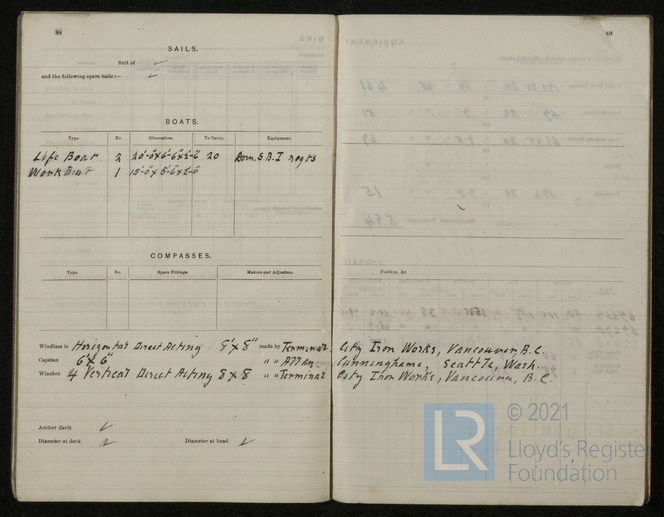 88
SAILS.
Suit of ✓
and the following spare Sails:— ✓
BOATS.
Type. No. Dimensions. No. Carry. Equipment.
Life Boat 2 20'-0"x6'-6"x2'-6" 20 Dom. S.B.I reqts
Work Boat 1 15'-0"x5'-6"x2'-0"
COMPASSES.
Type. No. Spare Fittings. Makers and Adjusters.
Windlass is Horizontal Direct Acting 8"x8" made by Terminal
Capstan 6"x6" " " Allan
Winches 4 Vertical Direct Acting 8x8 " " Terminal
Anchor davit ✓
Diameter at deck ✓ Diameter at head ✓
89
Position, &c.
City Iron Works, Vancouver, B.C.
Cunninghame, Seattle, Wash.
City Iron Works, Vancouver, B.C.
© 2021
LR
Lloyd's Register
Foundation